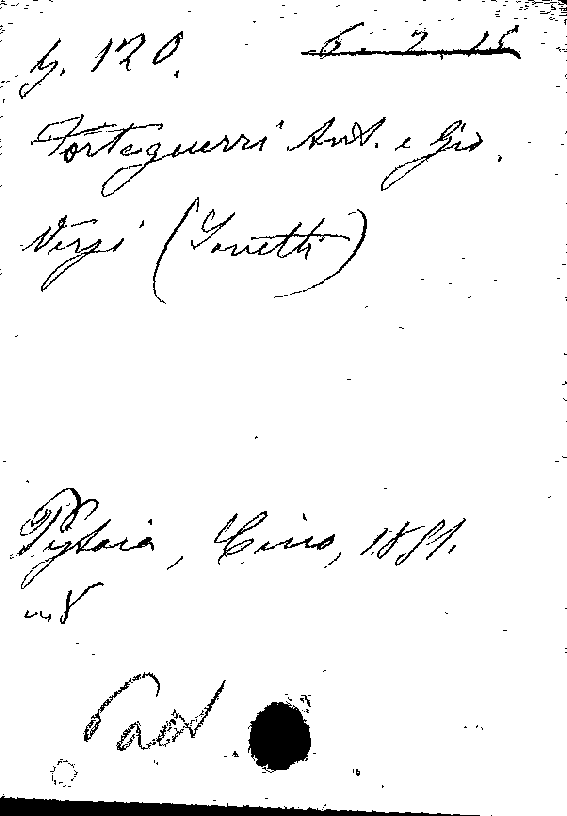 120.
6. 2. 15
Forteguerri Ant. e Gio.
Versi (Sonetti)
Pistoia, Cino, 1881.
in 8